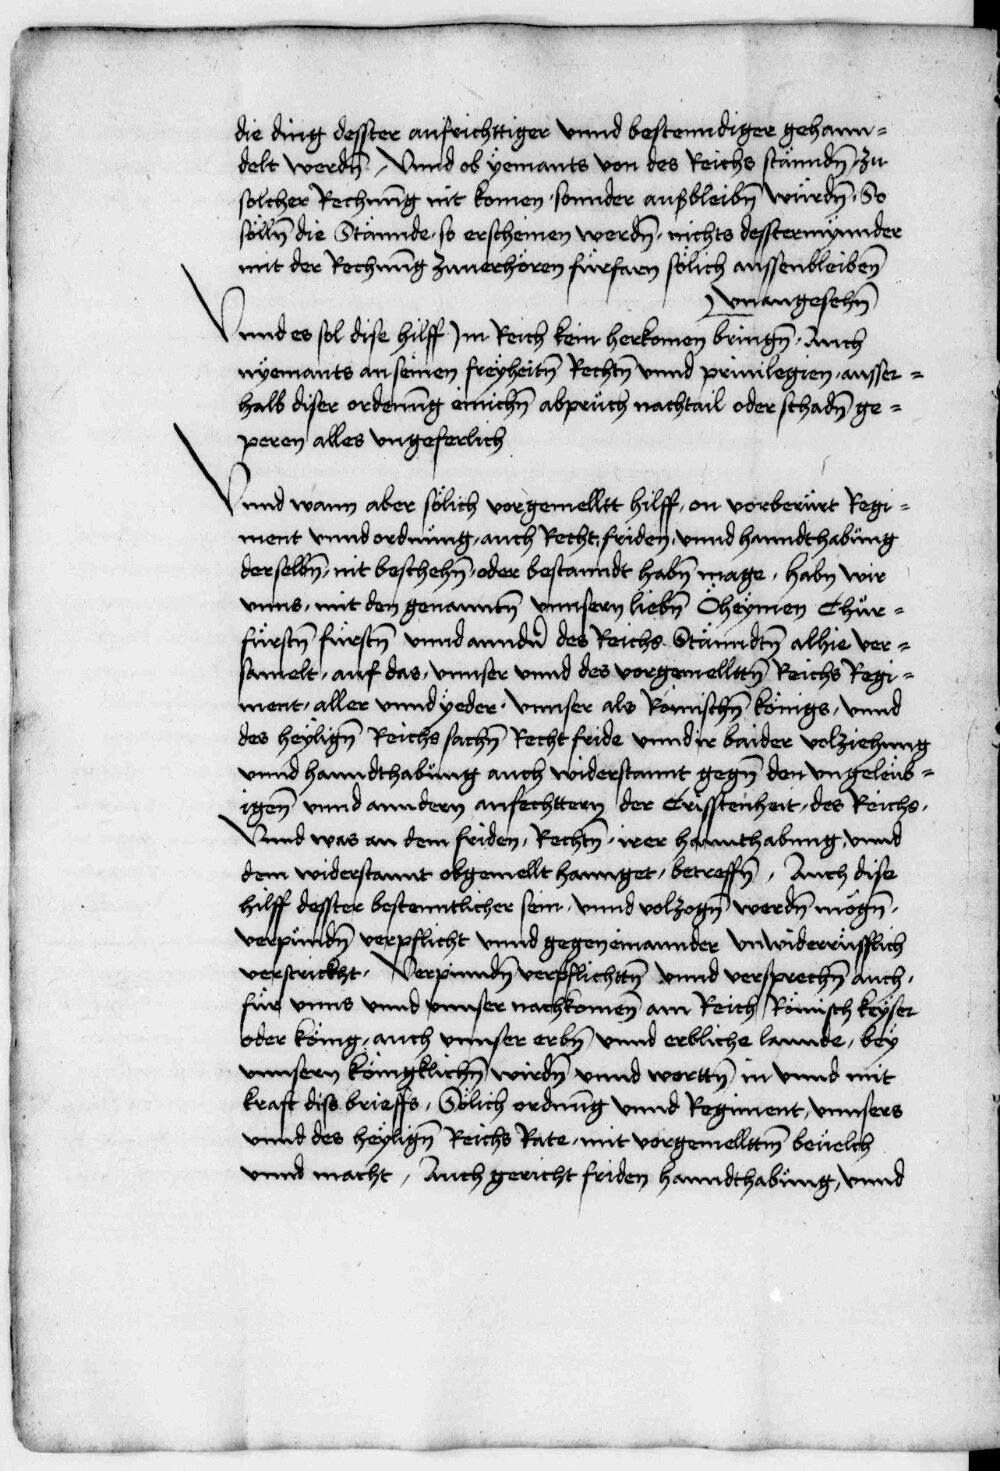 die ding desster aufrichttiger vnnd bestenndiger gehann=
delt werdn̄, Vnnd ob yemants von des Reichs stännden̄, zu
solcher Rechnūg nit komen, sonnder außbleibn̄ würdn̄, So
sölln̄ die Stännde, so erscheinen werdn̄, nichts desstermÿnnder
mit der Rechnūg zuuerhören fürfarn sölich aussenbleiben̄
vnangesehn̄
Vnnd es sol dise hilff Im Reich kein herkomen bringn̄, Auch
nÿemants an seinen freÿheitn̄ Rechtn̄ vnnd priuilegien, ausser=
halb diser ordenūg einichn̄ abpruch nachtail oder schadn̄ ge=
peren alles vngeferlich
Vnnd wann aber sölich vorgemelltt hilff, on vorberürt Regi=
ment vnnd ordnŭng, auch Recht, friden, vnnd hanndthabŭng
derselbn̄, nit beschehn̄, oder bestanndt habn̄ mage, habn wir
vnns, mit den genanntn̄ vnnsern liebn̄ Öheÿmen Chŭr=
fürstn̄ fürstn̄ vnnd anndn̄ des Reichs Stänndtn̄ alhie ver=
samelt, auf das, vnnser vnnd des vorgemelltn̄ Reichs Regi=
ment, aller vnnd ÿeder, vnnser als Römischn̄ königs, vnnd
des heÿlign̄ Reichs sachn̄ Recht fride vnnd ir baider volziehung
vnnd hanndthabŭng auch widerstannt gegn̄ den vngeleub=
igen̄ vnnd anndern anfechttern der Crisstenheit, des Reichs,
Vnnd was an dem friden, Rechtn̄, irer hannthabung, vnnd
dem widerstannt obgemellt hannget, betreffn̄, Auch dise
hilff desster bestenntlicher sein, vnnd volzogn̄ werdn̄ mögn̄,
verpŭndn̄ verpflicht vnnd gegeneinannder vnwiderrŭfflich
verstrickht, Verpinndn̄ verpflichttn̄ vnnd versprechn̄ auch,
für vnns vnnd vnnser nachkomen̄ am Reich Römisch keÿser
oder könig, auch vnnser erbn̄ vnnd erbliche lannde, beÿ
vnnsern königklichn̄ wirdn̄ vnnd wortn̄ in vnnd mit
kraft diss brieffs, Sölich ordnūg vnnd Regiment, vnnsers
vnnd des heÿlign̄ Reichs Rate, mit vorgemellttm̄ beuelch
vnnd macht, Auch gericht friden hanndthabŭng, vnnd